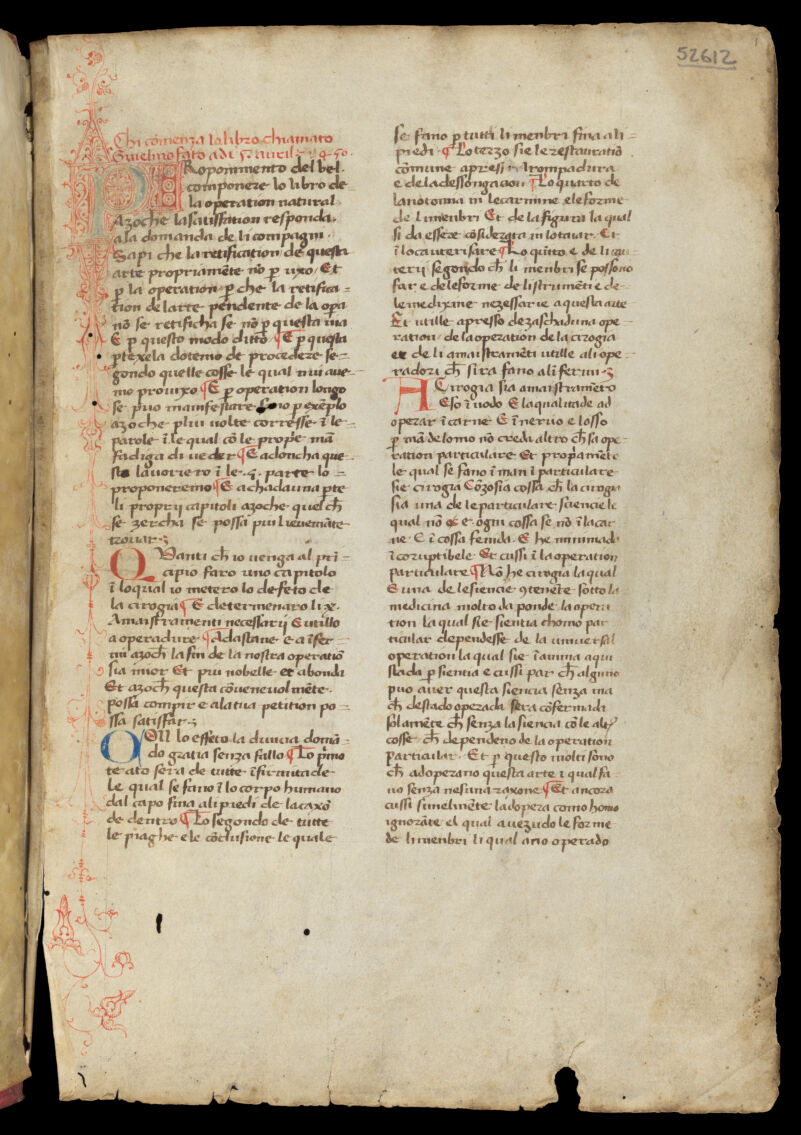 52612
Chi comenza lo libro chiamato
Guielmo fato adi 5 auril
Roponimento del bel
componere lo libro de
la operation natural
Azoche la satisfation responda
ala domanda de li compagni
Sapi che la retification de questa
arte propriamēte nō ꝑ uxo Et
ꝑ la operation ꝑ che la retifica=
tion de larte pendente de la opa
nō se retificha se nō ꝑ questa uia
E ꝑ questo modo ditto ¶ E ꝑ questa
de procedere se=
gondo quelle cosse le qual nui aue=
mo prouixo ¶ E ꝑ operation longo
se puo manifestare ꝑ exēplo
azoche plui uolte coresse ī le
parole ī le qual cō le prop̄e mā
fadiga di ueder ¶ E adoncha que=
sto lauoriero ī le .4. parte lo=
proponeremo ¶ E achadauna pte
li proprij capitoli azoche quel ch̄
se zercha se possa piui lieuemāte
trouar
QUanti ch̄ io uenga al prī=
cipio faro uno capitolo
ī loqual io metero lo defeto de
la cirogia ¶ E determenaro li x
Amaistramenti necessarij E utillo
a operadure ¶ Adastare e a īfer=
mi azoch̄ la fin de la nostra operatiō
sia mior Et piu nobelle et abondi
Et azoch̄ questa cōueneuol mēte
possa compir e alatua petition po=
ssa satisfar
COn lo effeto la diuina domā=
do gratia senza fallo ¶ Lo pṙmo
teato sera de tutte īfirmitade
le qual se fano ī lo corpo humano
dal capo fina ali piedi de la caxō
de dentro ¶ Lo segondo de tutte
le piaghe e le cōclusione le quale
se fano ꝑ tutti li menbri fina ali=
piedi ¶ Lo terzo sie le restauratiō
cōmune apresi Arompadura
e de la desslongacion ¶ Lo quarto de
lanotomia in le carmine e le forme
de li menbri Et de la figura la qual
si da essere cōsiderata in lotaiar Et
ī locauterisare ¶ Lo quīto e de li cau=
terij segondo ch̄ li menbri se possono
far e de le forme de listrumēti e de=
le medixine nezessarie a questa arte
Et utille apresso de zaschaduna ope=
ration de la operation de la cirogia
et de li amaistramēti utille ali ope=
radori ch̄ sira fano ali feriui
ACirogia sia amaistramēto
Eso ī uodo E la qualitade ad
operar ī carne E ī neruo e losso
ꝑ mā de lomo nō credi altro ch̄ sa ope=
ration particulare Et propamēte
le qual se fano ī man ī particulare
sie cirogia Cōzosia cossa ch̄ la cirogia
sia una de le particulare sciencie le
qual nō e ogni cossa se nō ī la car=
ne E ī cossa ferida E he
ī coruptibele Et cussi ī la operation
particulare ¶ Nō he cirogia la qual
E una de le siencie 9tenete sotto la
medicina molto da ponde la opera=
tion la qual sie sientia chomo par=
ticular dependesse de la uniuersal
operation la qual sie ī anima aqui=
stada ꝑ sientia e cussi par ch̄ alguno
puo auer questa siencia senza uia
ch̄ destado operada sera cōfermada
solamēte ch̄ senza la siencia cō le altr̄
cosse ch̄ dependeno de la operation
particular Et ꝑ questo molti sono
ch̄ adoperano questa arte ī qual fa=
no senza nesuna raxone ¶ Et ancora
cussi simelmēte ladopera como homo
ignorāte el qual auezudo le forme
de li menbri li qual ano operado